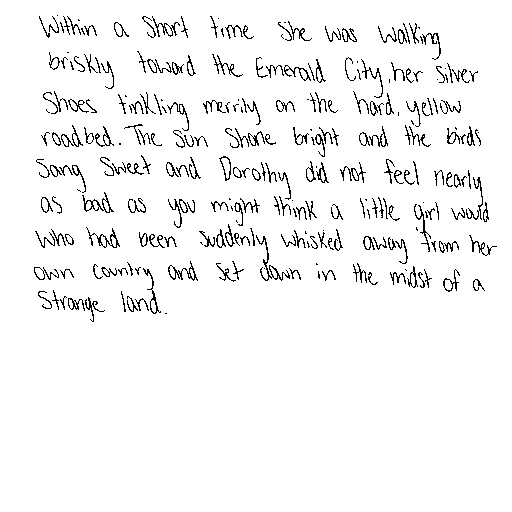 Within a short time she was walking
briskly toward the Emerald City, her silver
shoes tinkling merrily on the hard, yellow
roadbed. The sun shone bright and the birds
sang sweet and Dorothy did not feel nearly
as bad as you might think a little girl would
who had been suddenly whisked away from her
own country and set down in the midst of a
strange land.